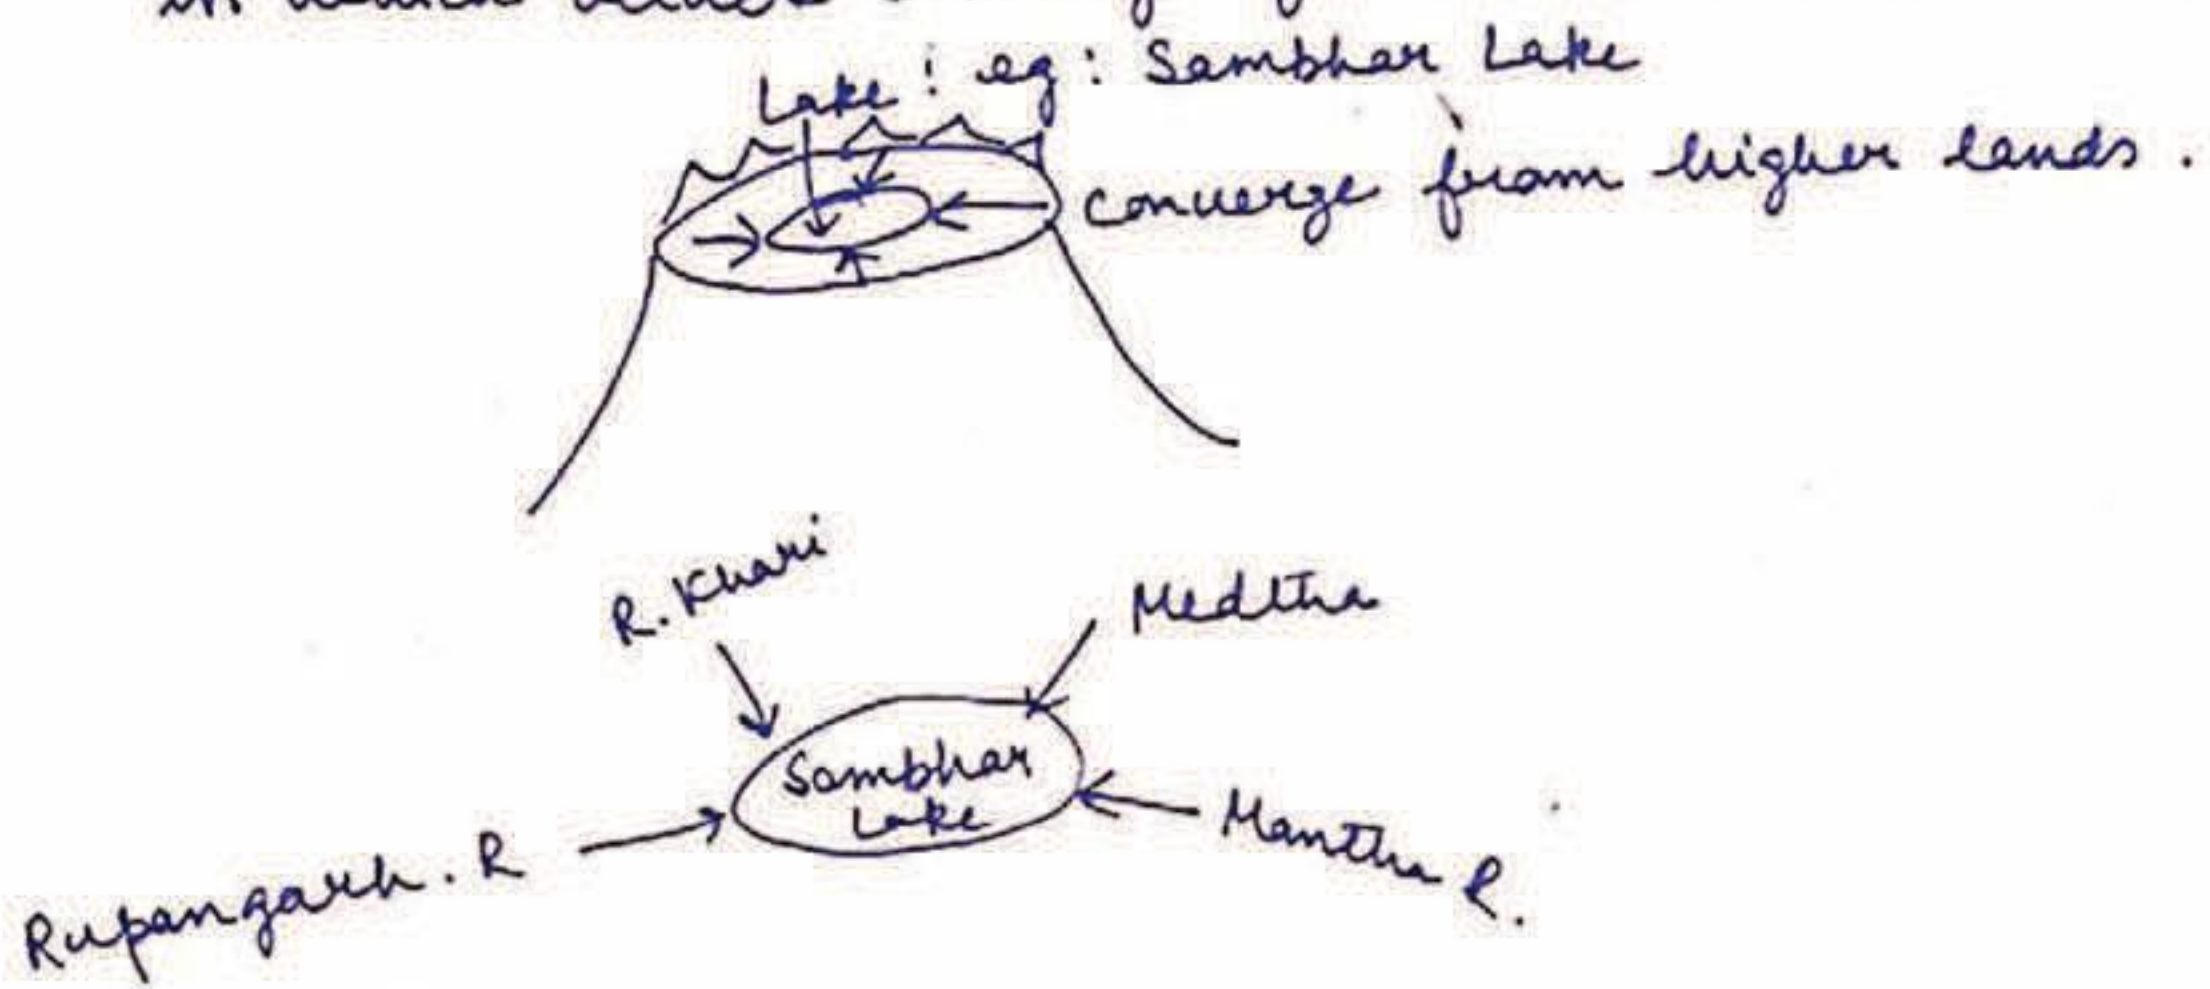 in which
eg: Sambhar Lake
Lake
converge from higher lands.
R. Khari
Medtha
Sambhar
Lake
Mantha R.
Rupangarh. R